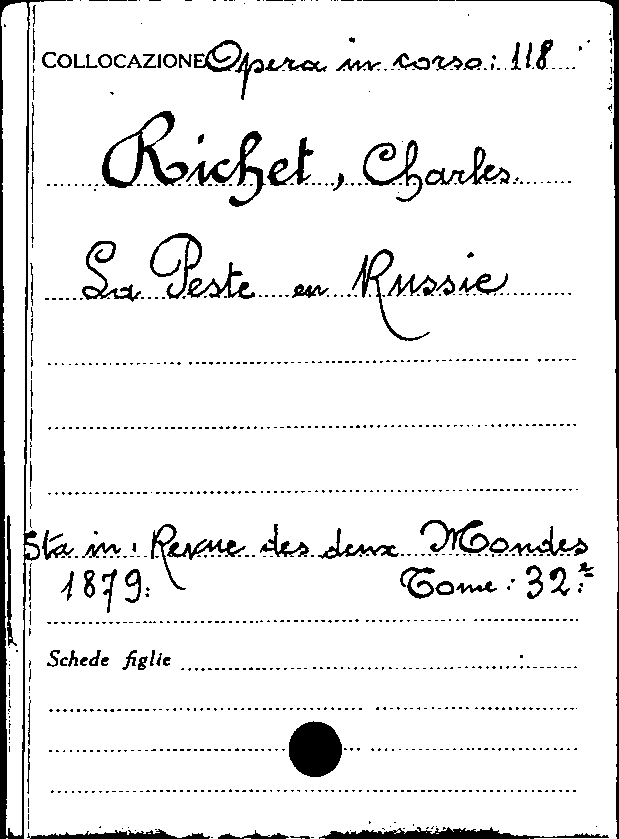 COLLOCAZIONE Opera in corso: 118
Richet, Charles.
La Peste en Russie
Sta in: Revue des deux Mondes
1879. Tome: 32.e
Schede figlie